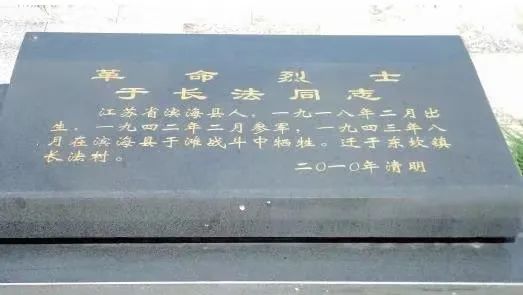 革命烈士
于长法同志
江苏省滨海县人，一九一八年二月出
生，一九四二年二月参军，一九四三年八
月在滨海县于滩战斗中牺牲。迁于东坎镇
长法村。
二〇一〇年清明